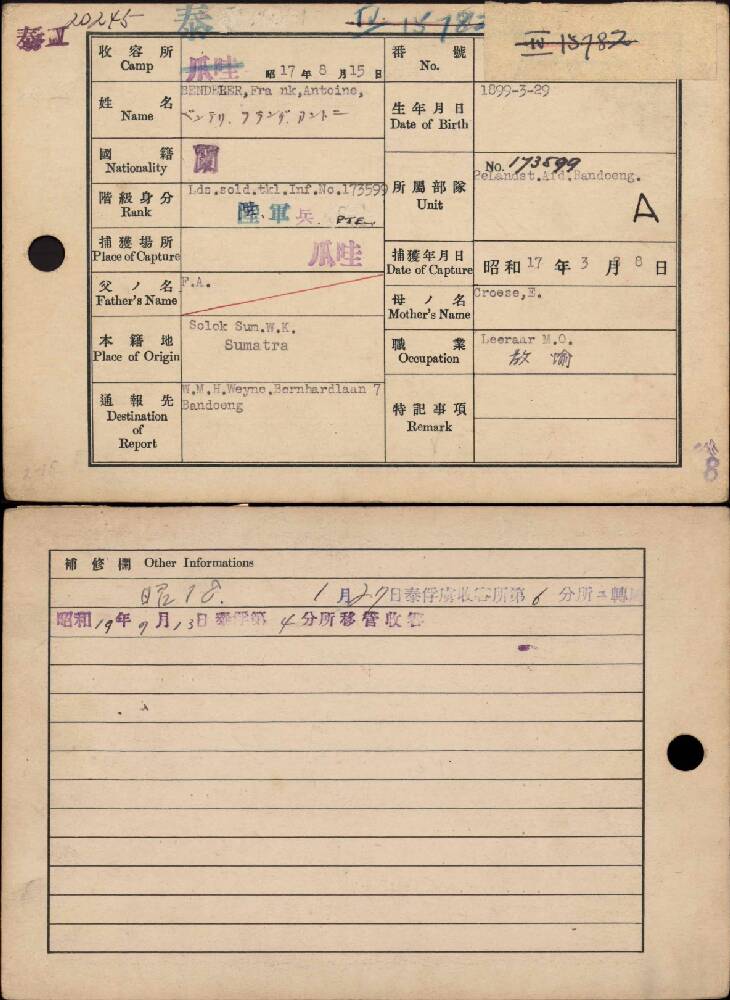 泰 II 20245 泰 IV 15782 IV 15782
收容所 Camp 爪哇 昭17年8月15日 番號 No.
姓名 Name BENDELER,Fra nk,Antoine, 生年月日 Date of Birth 1899-3-29
國籍 Nationality 蘭
階級身分 Rank Lds.sold.tkl.Inf.No.173599 陸軍 兵 PTE 所屬部隊 Unit No. 173599
Pelandst.Afd.Bandoeng.
A
捕獲場所 Place of Capture 爪哇 捕獲年月日 Date of Capture 昭和17年3月8日
父ノ名 Father's Name F.A. 母ノ名 Mother's Name Croese,E.
本籍地 Place of Origin Solok Sum.W.K.
Sumatra
職業 Occupation Leeraar M.O.
通報先 Destination of Report W.M.H.Weyne.Bernhardlaan 7
Bandoeng
特記事項 Remark
8
補修欄 Other Informations
昭18. 1月27日泰俘虜收容所第6分所ニ轉屬
昭和19年9月13日泰俘第4分所移管收容